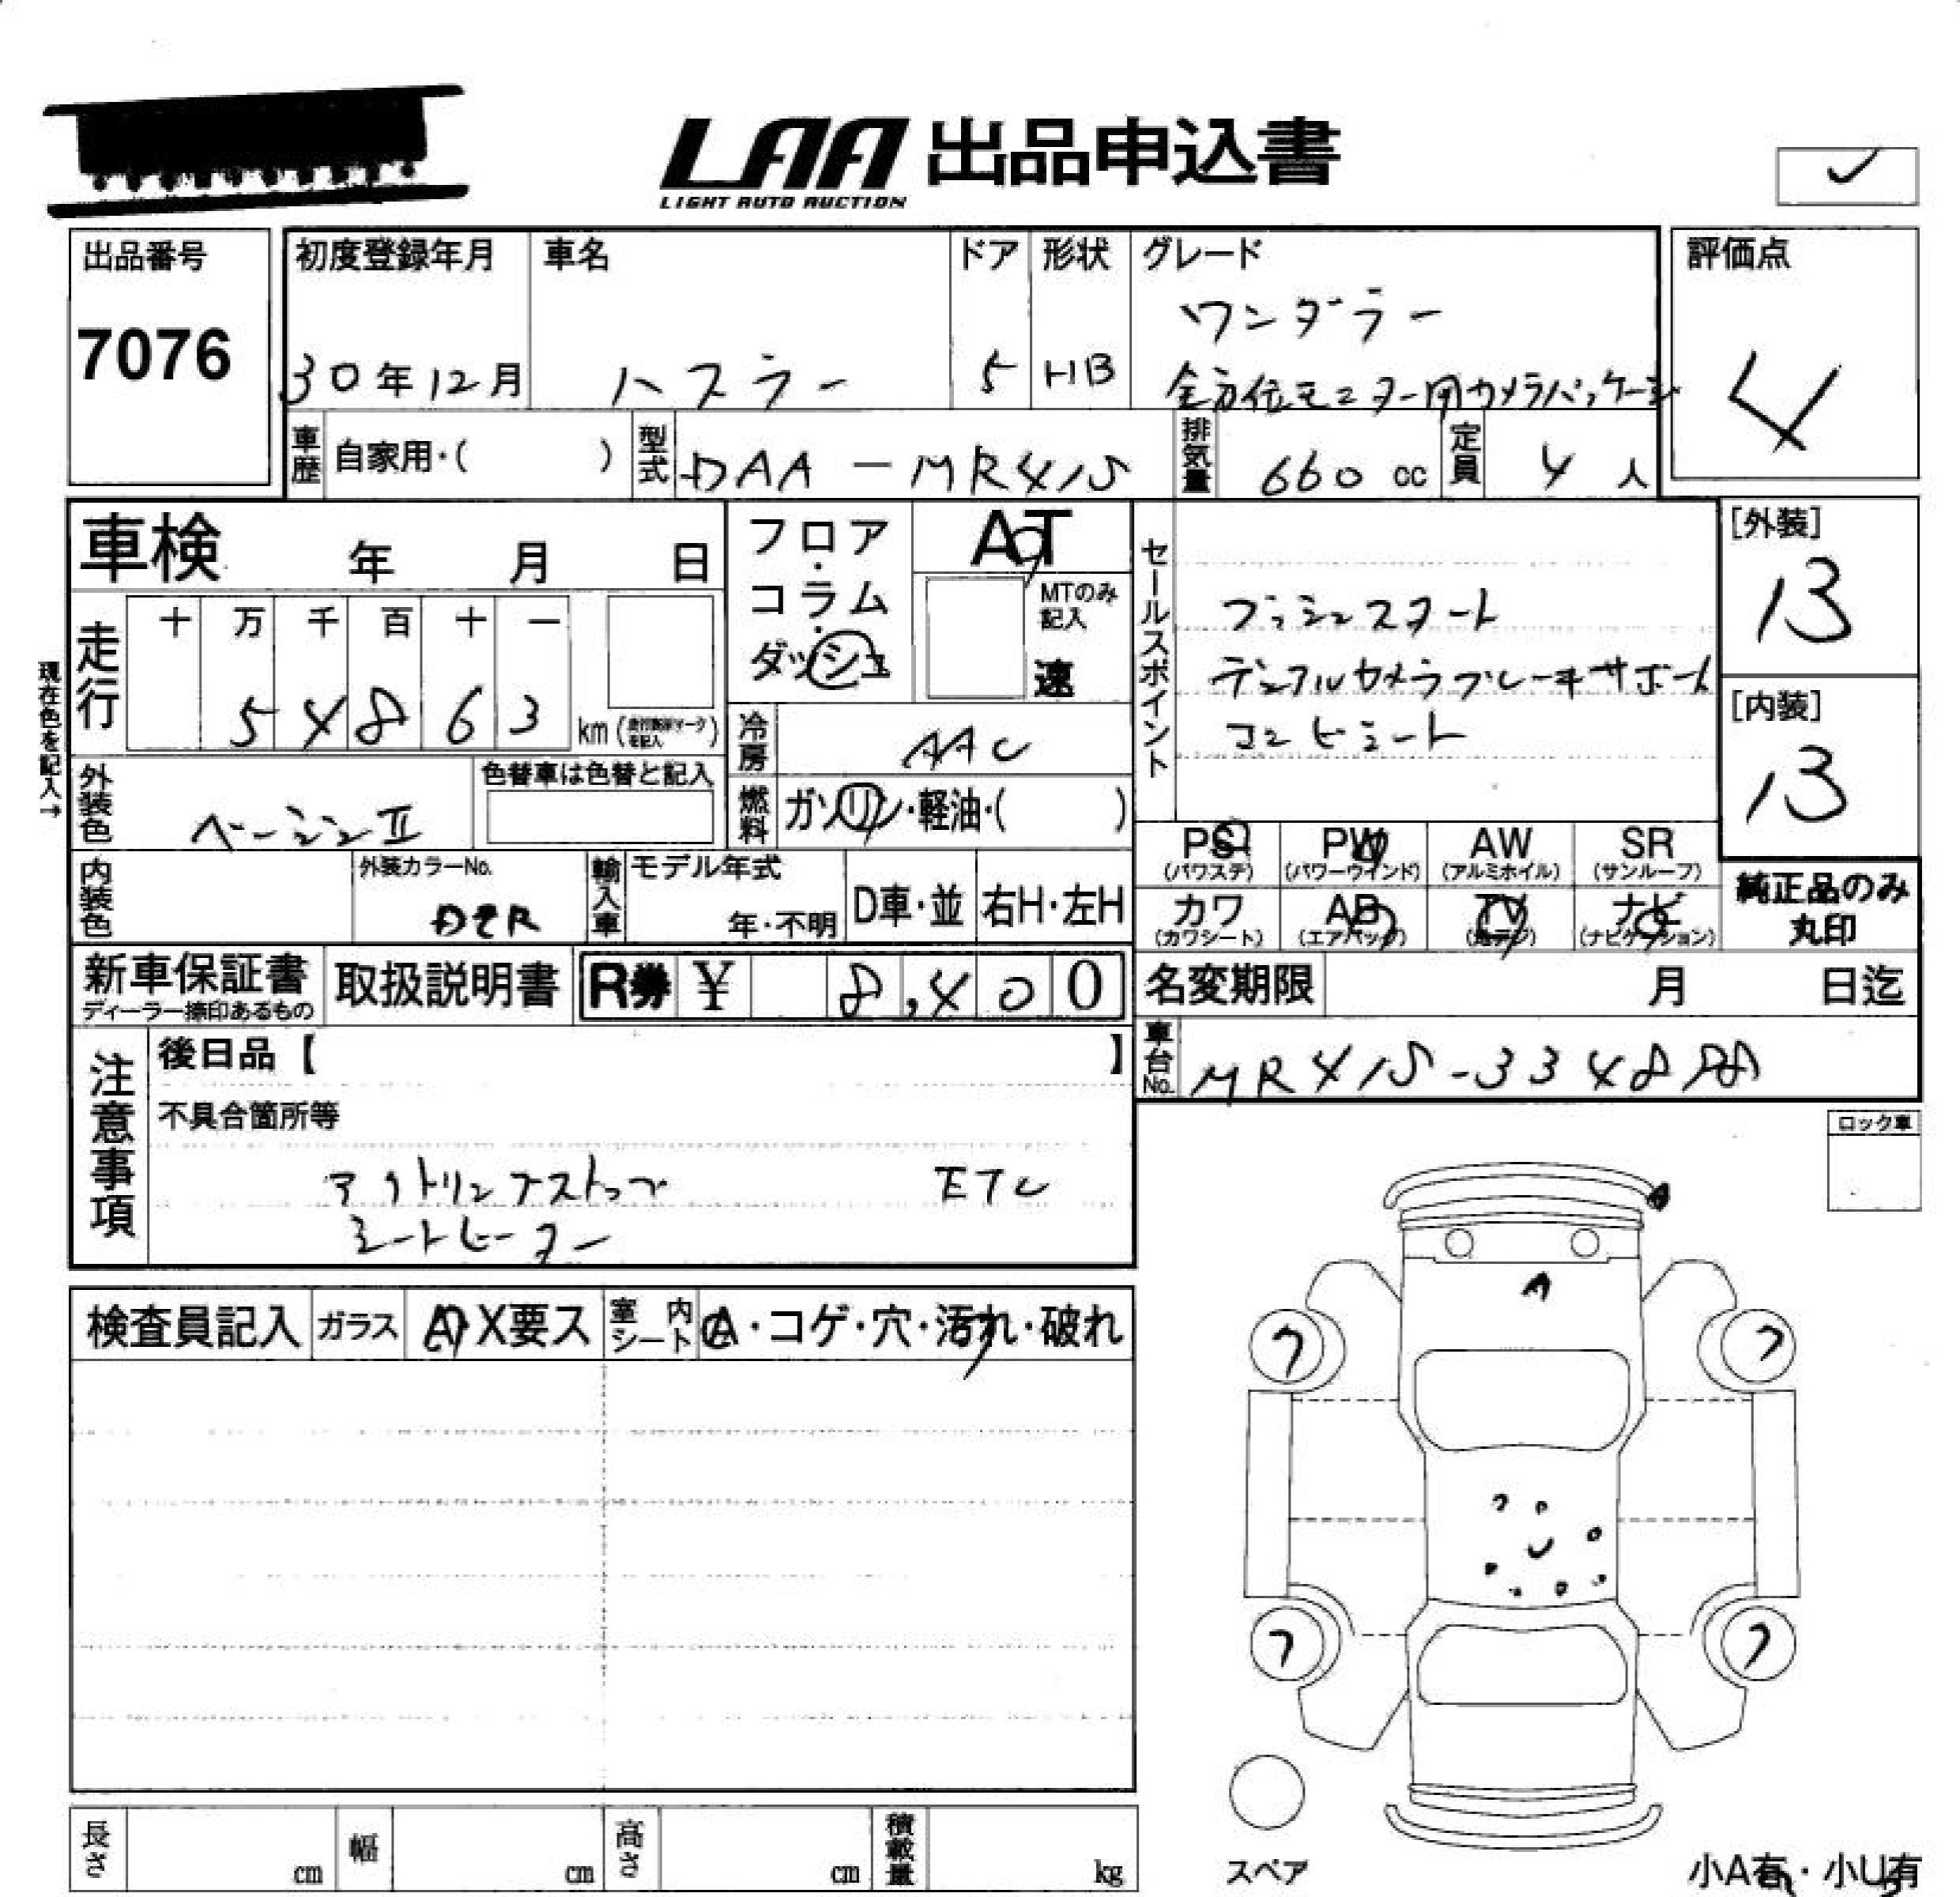 LAA 出品申込書
LIGHT AUTO AUCTION
出品番号
7076
初度登録年月
30年12月
車名
ハスラー
ドア
5
形状
HB
グレード
ワンダラー
全方位モニター用カメラパッケージ
評価点
4
車歴
自家用・( )
型式
DAA-MR41S
排気量
660 cc
定員
4 人
車検 年 月 日
走行
十 万 千 百 十 一
5 4 8 6 3
km (
現在色を記入→
フロア・コラム・ダッシュ
AT
MTのみ
記入
速
冷房
AAC
燃料
ガソリン・軽油・( )
外装色
色替車は色替と記入
内装色
外装カラーNo.
輸入車
モデル年式
年・不明
D車・並
右H・左H
セールスポイント
プッシュスタート
デュアルカメラブレーキサポート
コンビシート
[外装]
13
[内装]
13
PS
(パワステ)
PW
(パワーウインド)
AW
(アルミホイル)
SR
(サンルーフ)
カワ
(カワシート)
AB
(エアバッグ)
TV
(地デジ)
ナビ
(ナビゲーション)
純正品のみ
丸印
新車保証書
ディーラー捺印あるもの
取扱説明書
R券 ¥ 8,400
名変期限 月 日迄
車台No.
注意事項
後日品【 】
不具合箇所等
アイドリングストップ ETC
シートヒーター
ロック車
A
A
ワ
ワ
ワ
ワ
検査員記入
ガラス
A・X要ス
室内シート
A・コゲ・穴・汚れ・破れ
長さ cm
幅 cm
高さ cm
積載量 kg
スペア
小A有・小U有